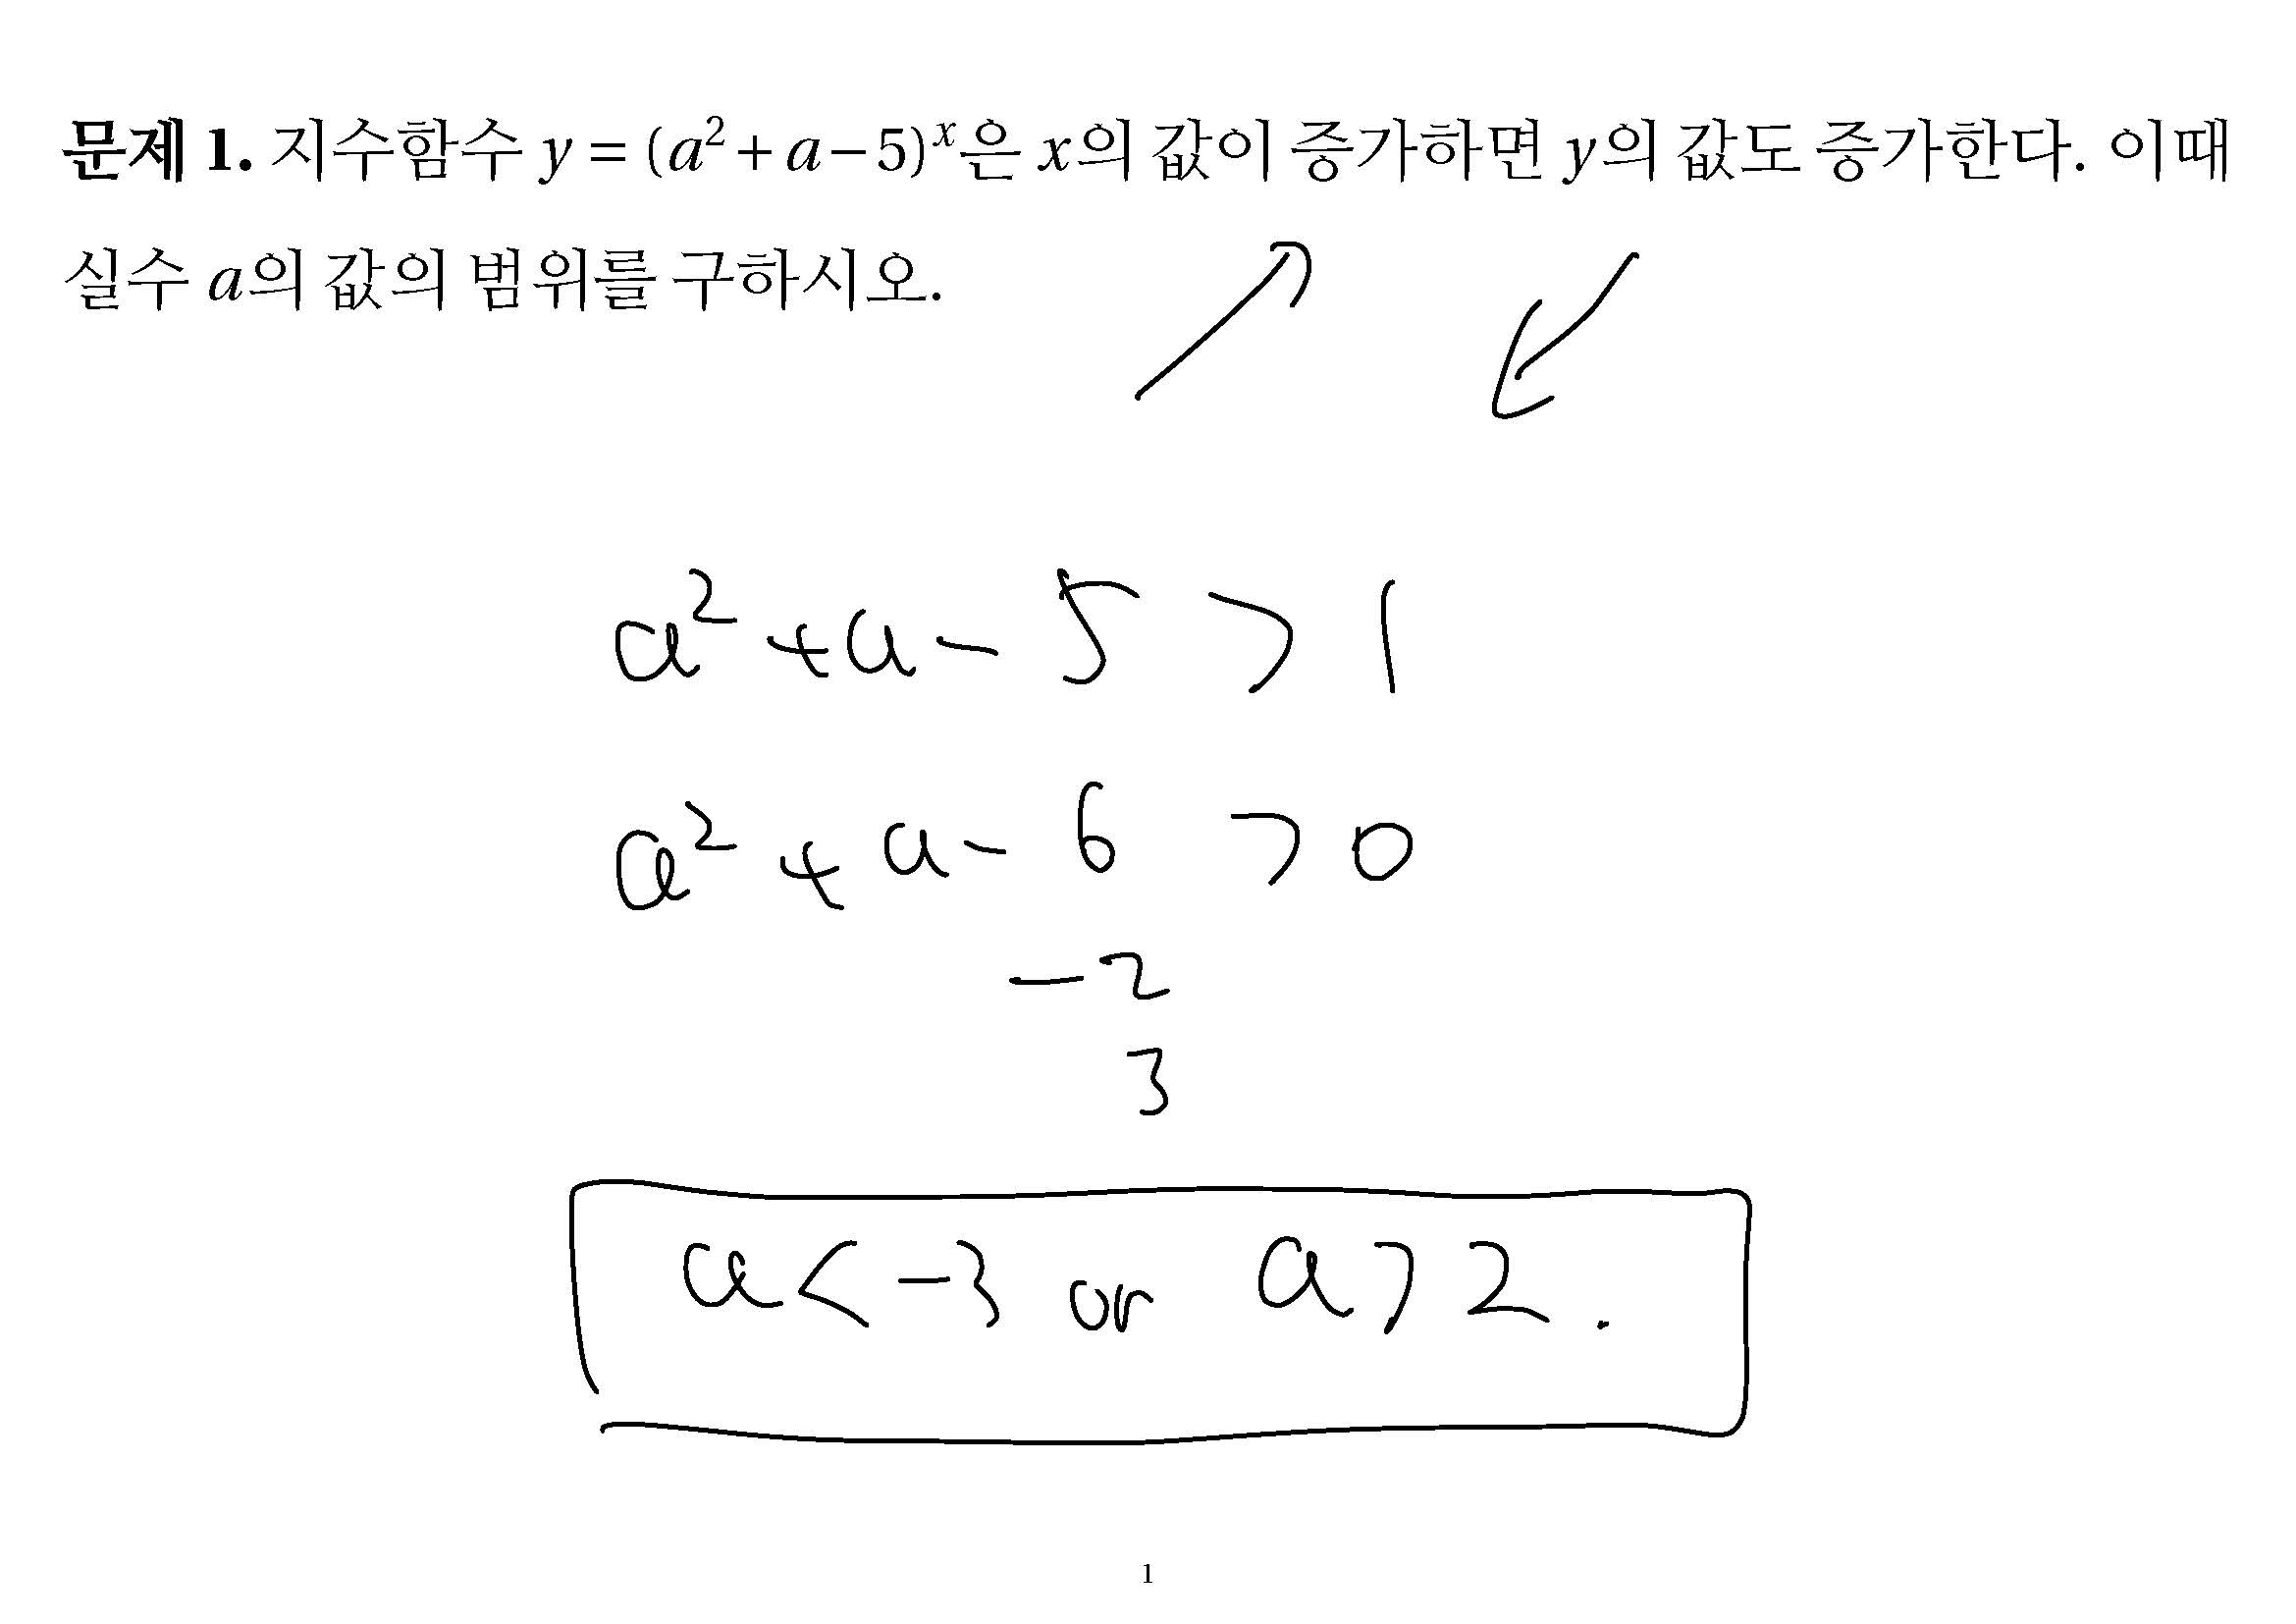 문제 1. 지수함수 y = (a² + a − 5)ˣ은 x의 값이 증가하면 y의 값도 증가한다. 이때
실수 a의 값의 범위를 구하시오.
a² + a − 5 > 1
a² + a − 6 > 0
−2
3
a < −3 or a > 2.
1